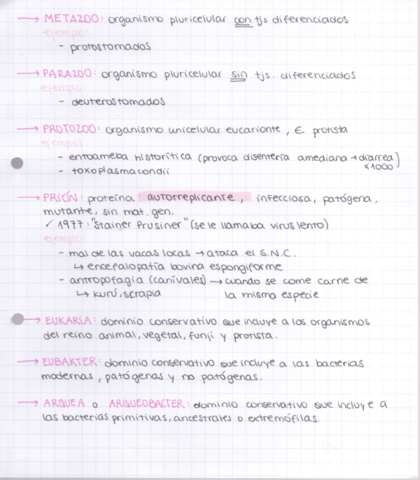 → METAZOO: organismo pluricelular con tjs diferenciados
ejemplo:
- protostomados
→ PARAZOO: organismo pluricelular sin tjs. diferenciados
ejemplo:
- deuterostomados
→ PROTOZOO: organismo unicelular eucarionte, ∈ protista
ejemplo:
- entoameba historítica (provoca disentería amediana → diarrea) x1000
- toxoplasma condii
→ PRIÓN: proteína autorreplicante, infecciosa, patógena,
mutante, sin mat. gen.
✓ 1977: "Stainer Prusiner" (se le llamaba virus lento)
ejemplo:
- mal de las vacas locas → ataca el S.N.C.
↳ encefalopatía bovina espongiforme
- antropofagia (canívales) → cuando se come carne de
↳ kurú, scrapia la misma especie
→ EUKARIA: dominio conservativo que incluye a los organismos
del reino animal, vegetal, funji y protista.
→ EUBAKTER: dominio conservativo que incluye a las bacterias
modernas, patógenas y no patógenas.
→ ARQUEA o ARQUEOBACTER: dominio conservativo que incluye a
las bacterias primitivas, ancestrales o extremófilas.